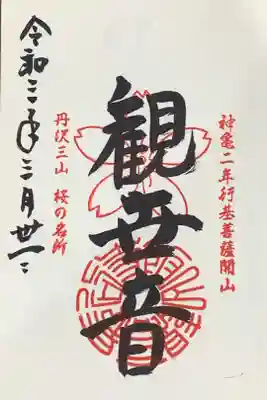 神亀二年行基菩薩開山
観世音
丹沢三山 桜の名所
令和三年三月廿一日